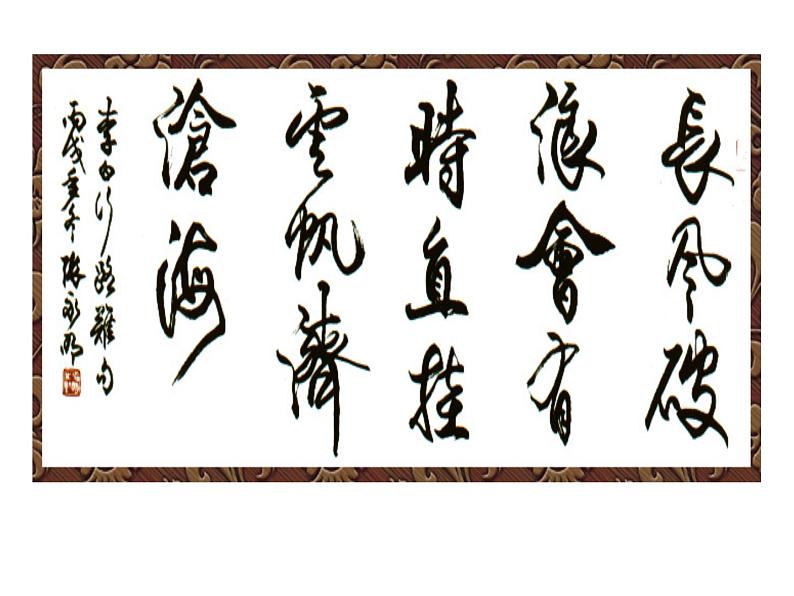 長风破
浪會有
時直挂
雲帆濟
滄海
李白行路難句
丙戌年冬陈永明